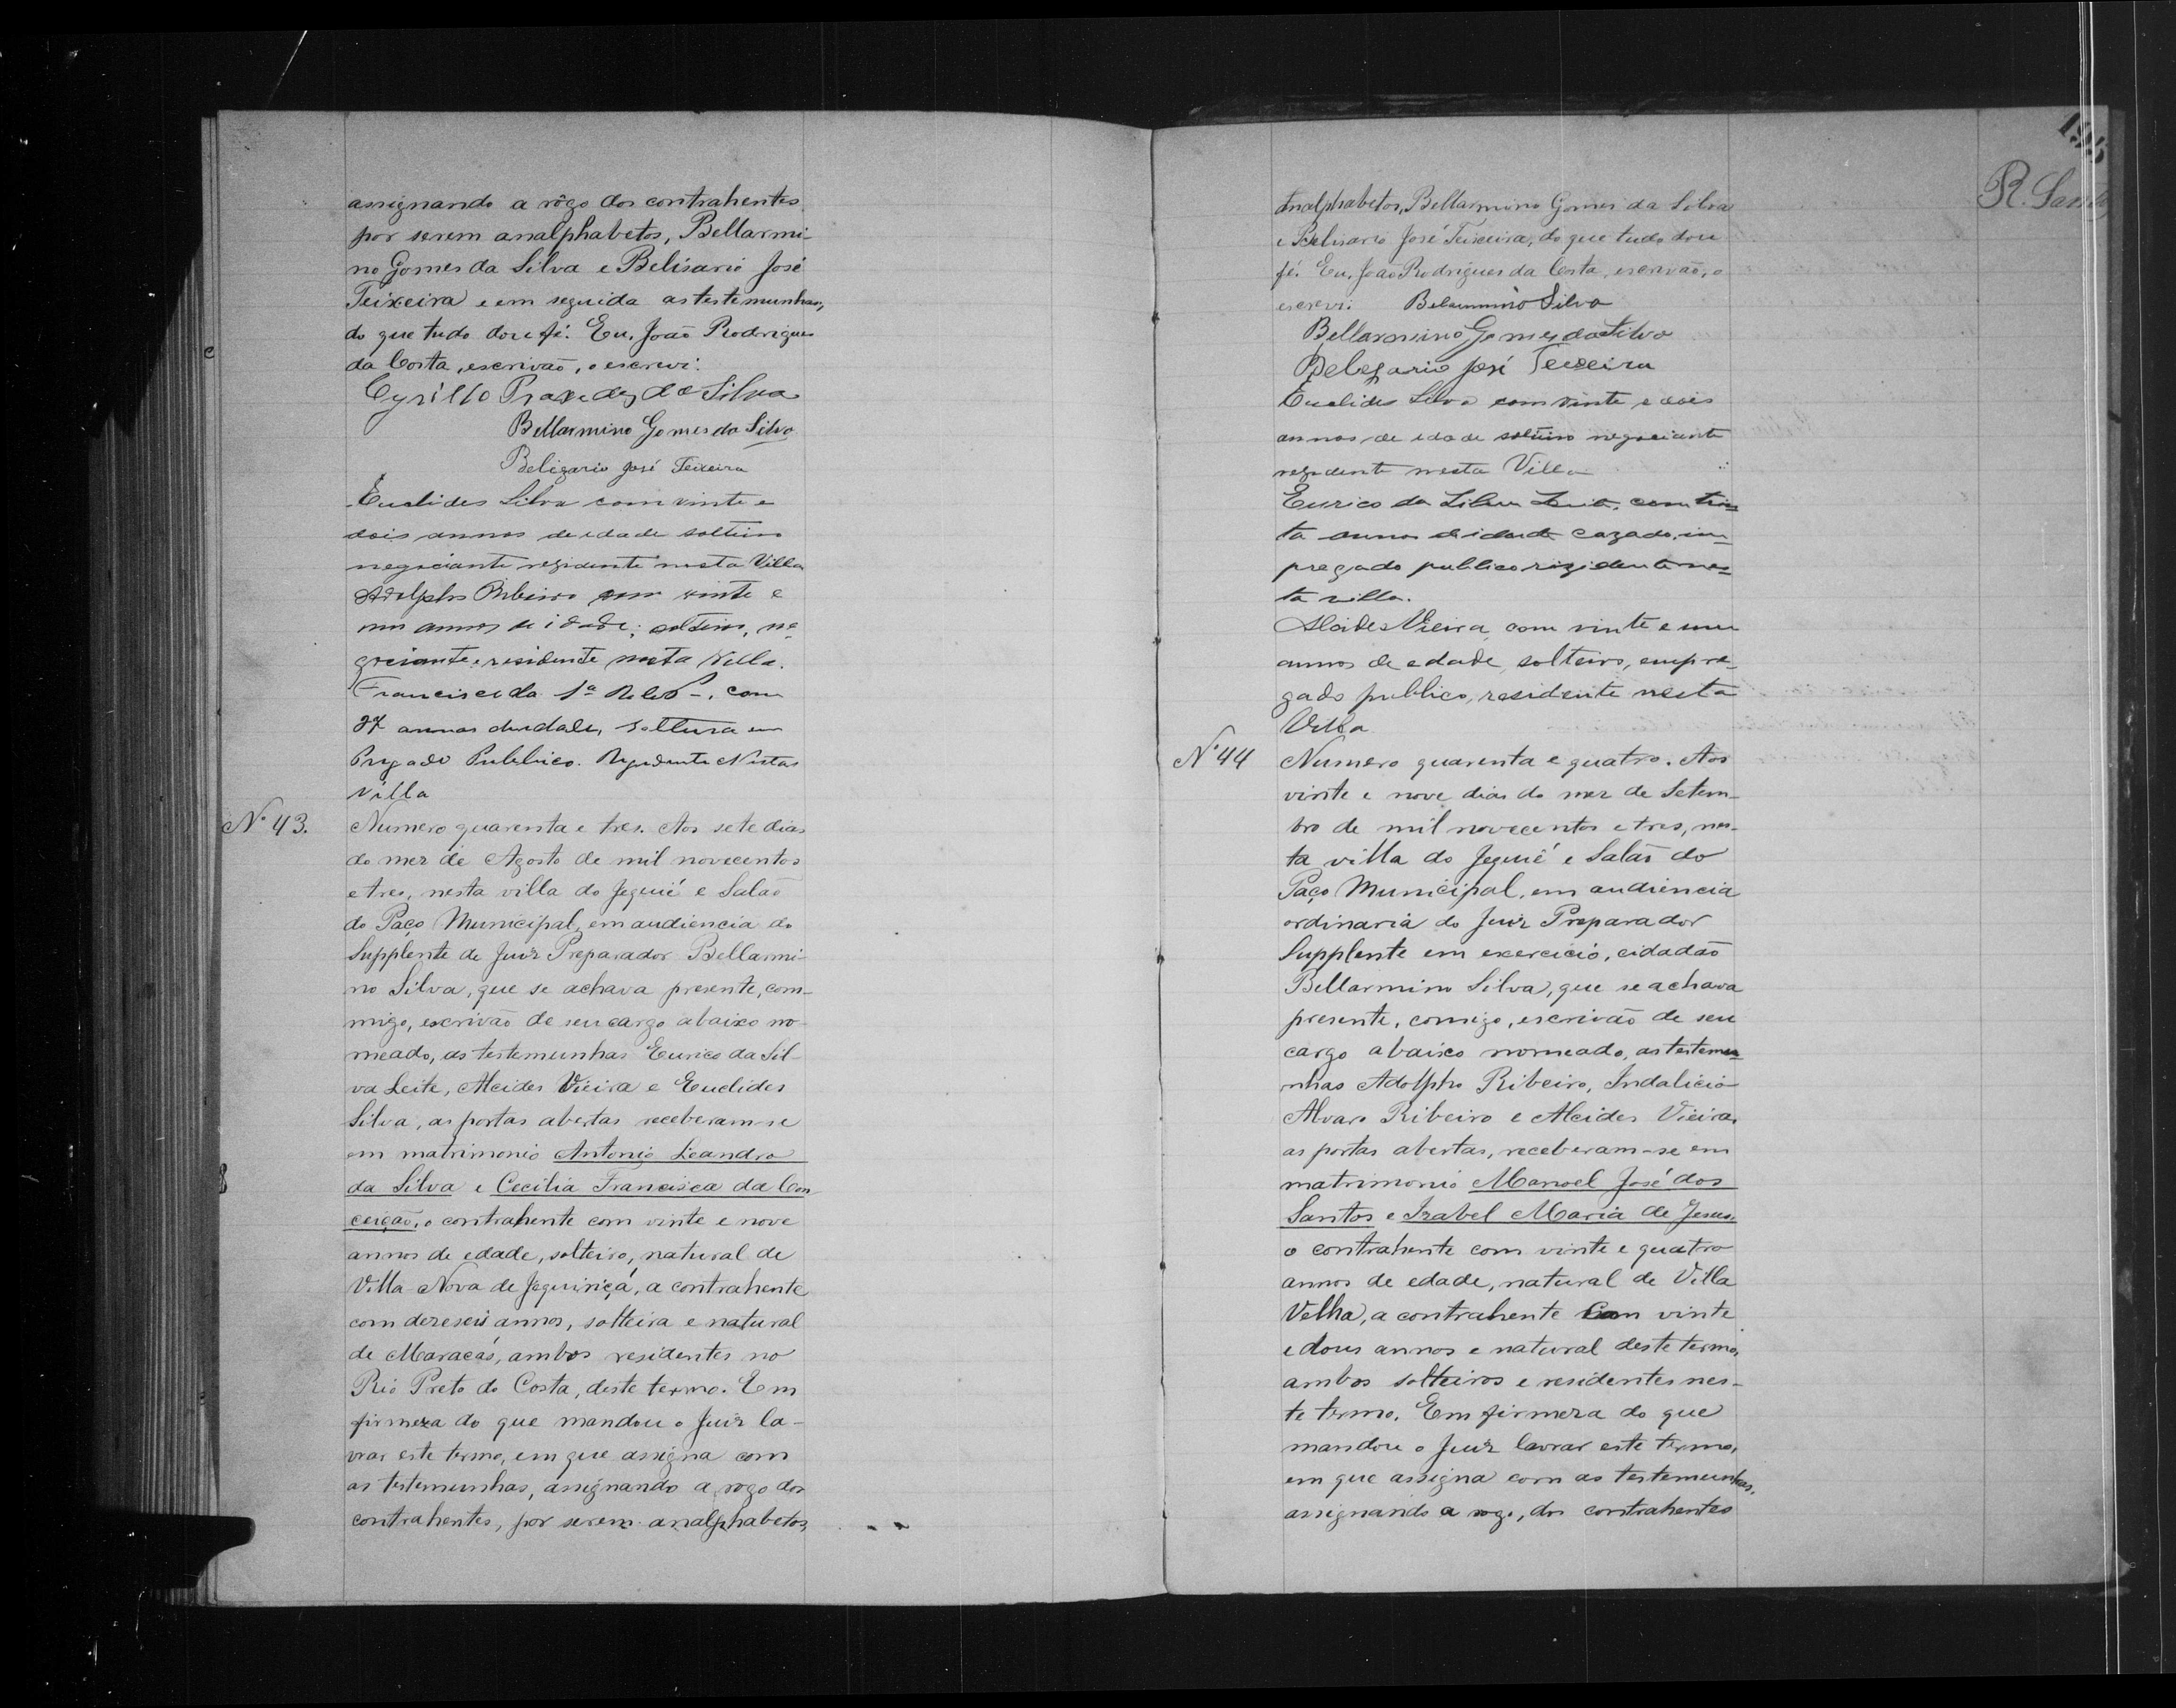 assignando a rôgo dos contrahentes
por serem analphabetos, Bellarmi-
no Gomes da Silva e Belisario José
Teixeira e em seguida as testemunhas,
do que tudo dou fé. Eu, João Rodrigues
da Costa, escrivão, o escrevi.
Cyrillo Praxedes da Silva
Bellarmino Gomes da Silva
Beligario José Teixeira
Euclides Silva com vinte e
dois annos de edade solteiro
negociante rezidente nesta Villa
Adolpho Ribeiro com vinte e
um annos de idade; solteiro, ne-
gociante e residente nesta Villa.
Francisco da com
27 annos de edade, solteiro em
pregado Publico. Nesta
Villa
Nº 43.
Numero quarenta e tres. Aos sete dias
do mez de Agosto de mil novecentos
e tres, nesta villa do Jequié e Salão
do Paço Municipal, em audiencia do
Supplente de Juiz Preparador Bellarmi-
no Silva, que se achava presente, com-
migo, escrivão de seu cargo abaixo no-
meado, as testemunhas Eurico da Sil-
va Leite, Alcides Vieira e Euclides
Silva, as portas abertas receberam-se
em matrimonio Antonio Leandro
da Silva e Cecilia Francisca da Con
ceição, o contrahente com vinte e nove
annos de edade, solteiro, natural de
Villa Nova de Jequiriçá, a contrahente
com dezeseis annos, solteira e natural
de Maracás, ambos residentes no
Rio Preto do Costa, deste termo. Em
firmeza do que mandou o Juiz la-
vrar este termo, em que assigna com
as testemunhas, assignando a rogo dos
contrahentes, por serem analphabetos,
195
R. Sant
analphabetos, Bellarmino Gomes da Silva
e Belisario José Teixeira, do que tudo dou
fé. Eu, João Rodrigues da Costa, escrivão, o
escrevi. Belarmino Silva
Bellarmino Gomes da Silva
Belegario José Teixeira
Euclides Silva com vinte e dois
annos de edade solteiro negociante
rezidente nesta Villa
Eurico da Silva Leite, com trin-
ta annos de idade cazado, em-
pregado publico rizidente nes-
ta villa.
Alcides Vieira, com vinte e um
annos de edade, solteiro, empre-
gado publico, residente nesta
Villa
Nº 44
Numero quarenta e quatro. Aos
vinte e nove dias do mez de Setem-
bro de mil novecentos e tres, nes-
ta villa do Jequié e Salão do
Paço Municipal, em audiencia
ordinaria do Juiz Preparador
Supplente em exercicio, cidadão
Bellarmino Silva, que se achava
presente, comigo, escrivão de seu
cargo abaixo nomeado, as testemu-
nhas Adolpho Ribeiro, Indalicio
Alvaro Ribeiro e Alcides Vieira,
as portas abertas, receberam-se em
matrimonio Manoel José dos
Santos e Izabel Maria de Jesus,
o contrahente com vinte e quatro
annos de edade, natural de Villa
Velha, a contrahente com vinte
e dous annos e natural deste termo,
ambos solteiros e residentes nes-
te termo. Em firmeza do que
mandou o Juiz lavrar este termo,
em que assigna com as testemunhas,
assignando a rogo, dos contrahentes